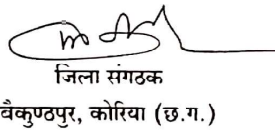 जिला संगठक
बैकुण्ठपुर, कोरिया (छ.ग.)